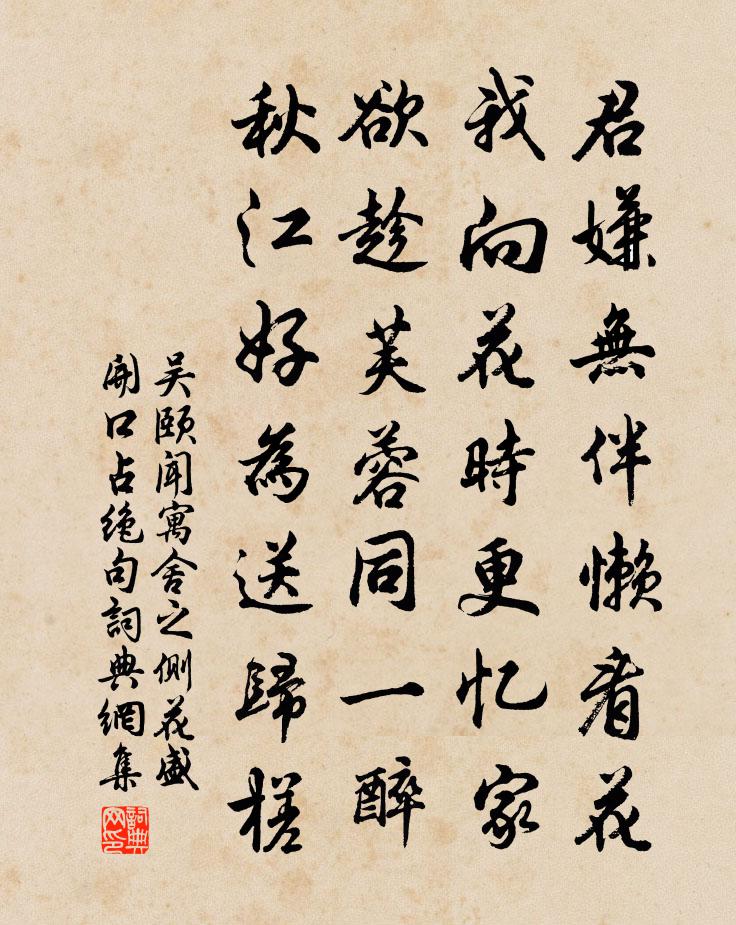 君嫌無伴懶看花
我向花時更忆家
欲趁芙蓉同一醉
秋江好為送歸槎
吴颐闻寓舍之側花盛
開口占绝句詞典網集
詞典网印